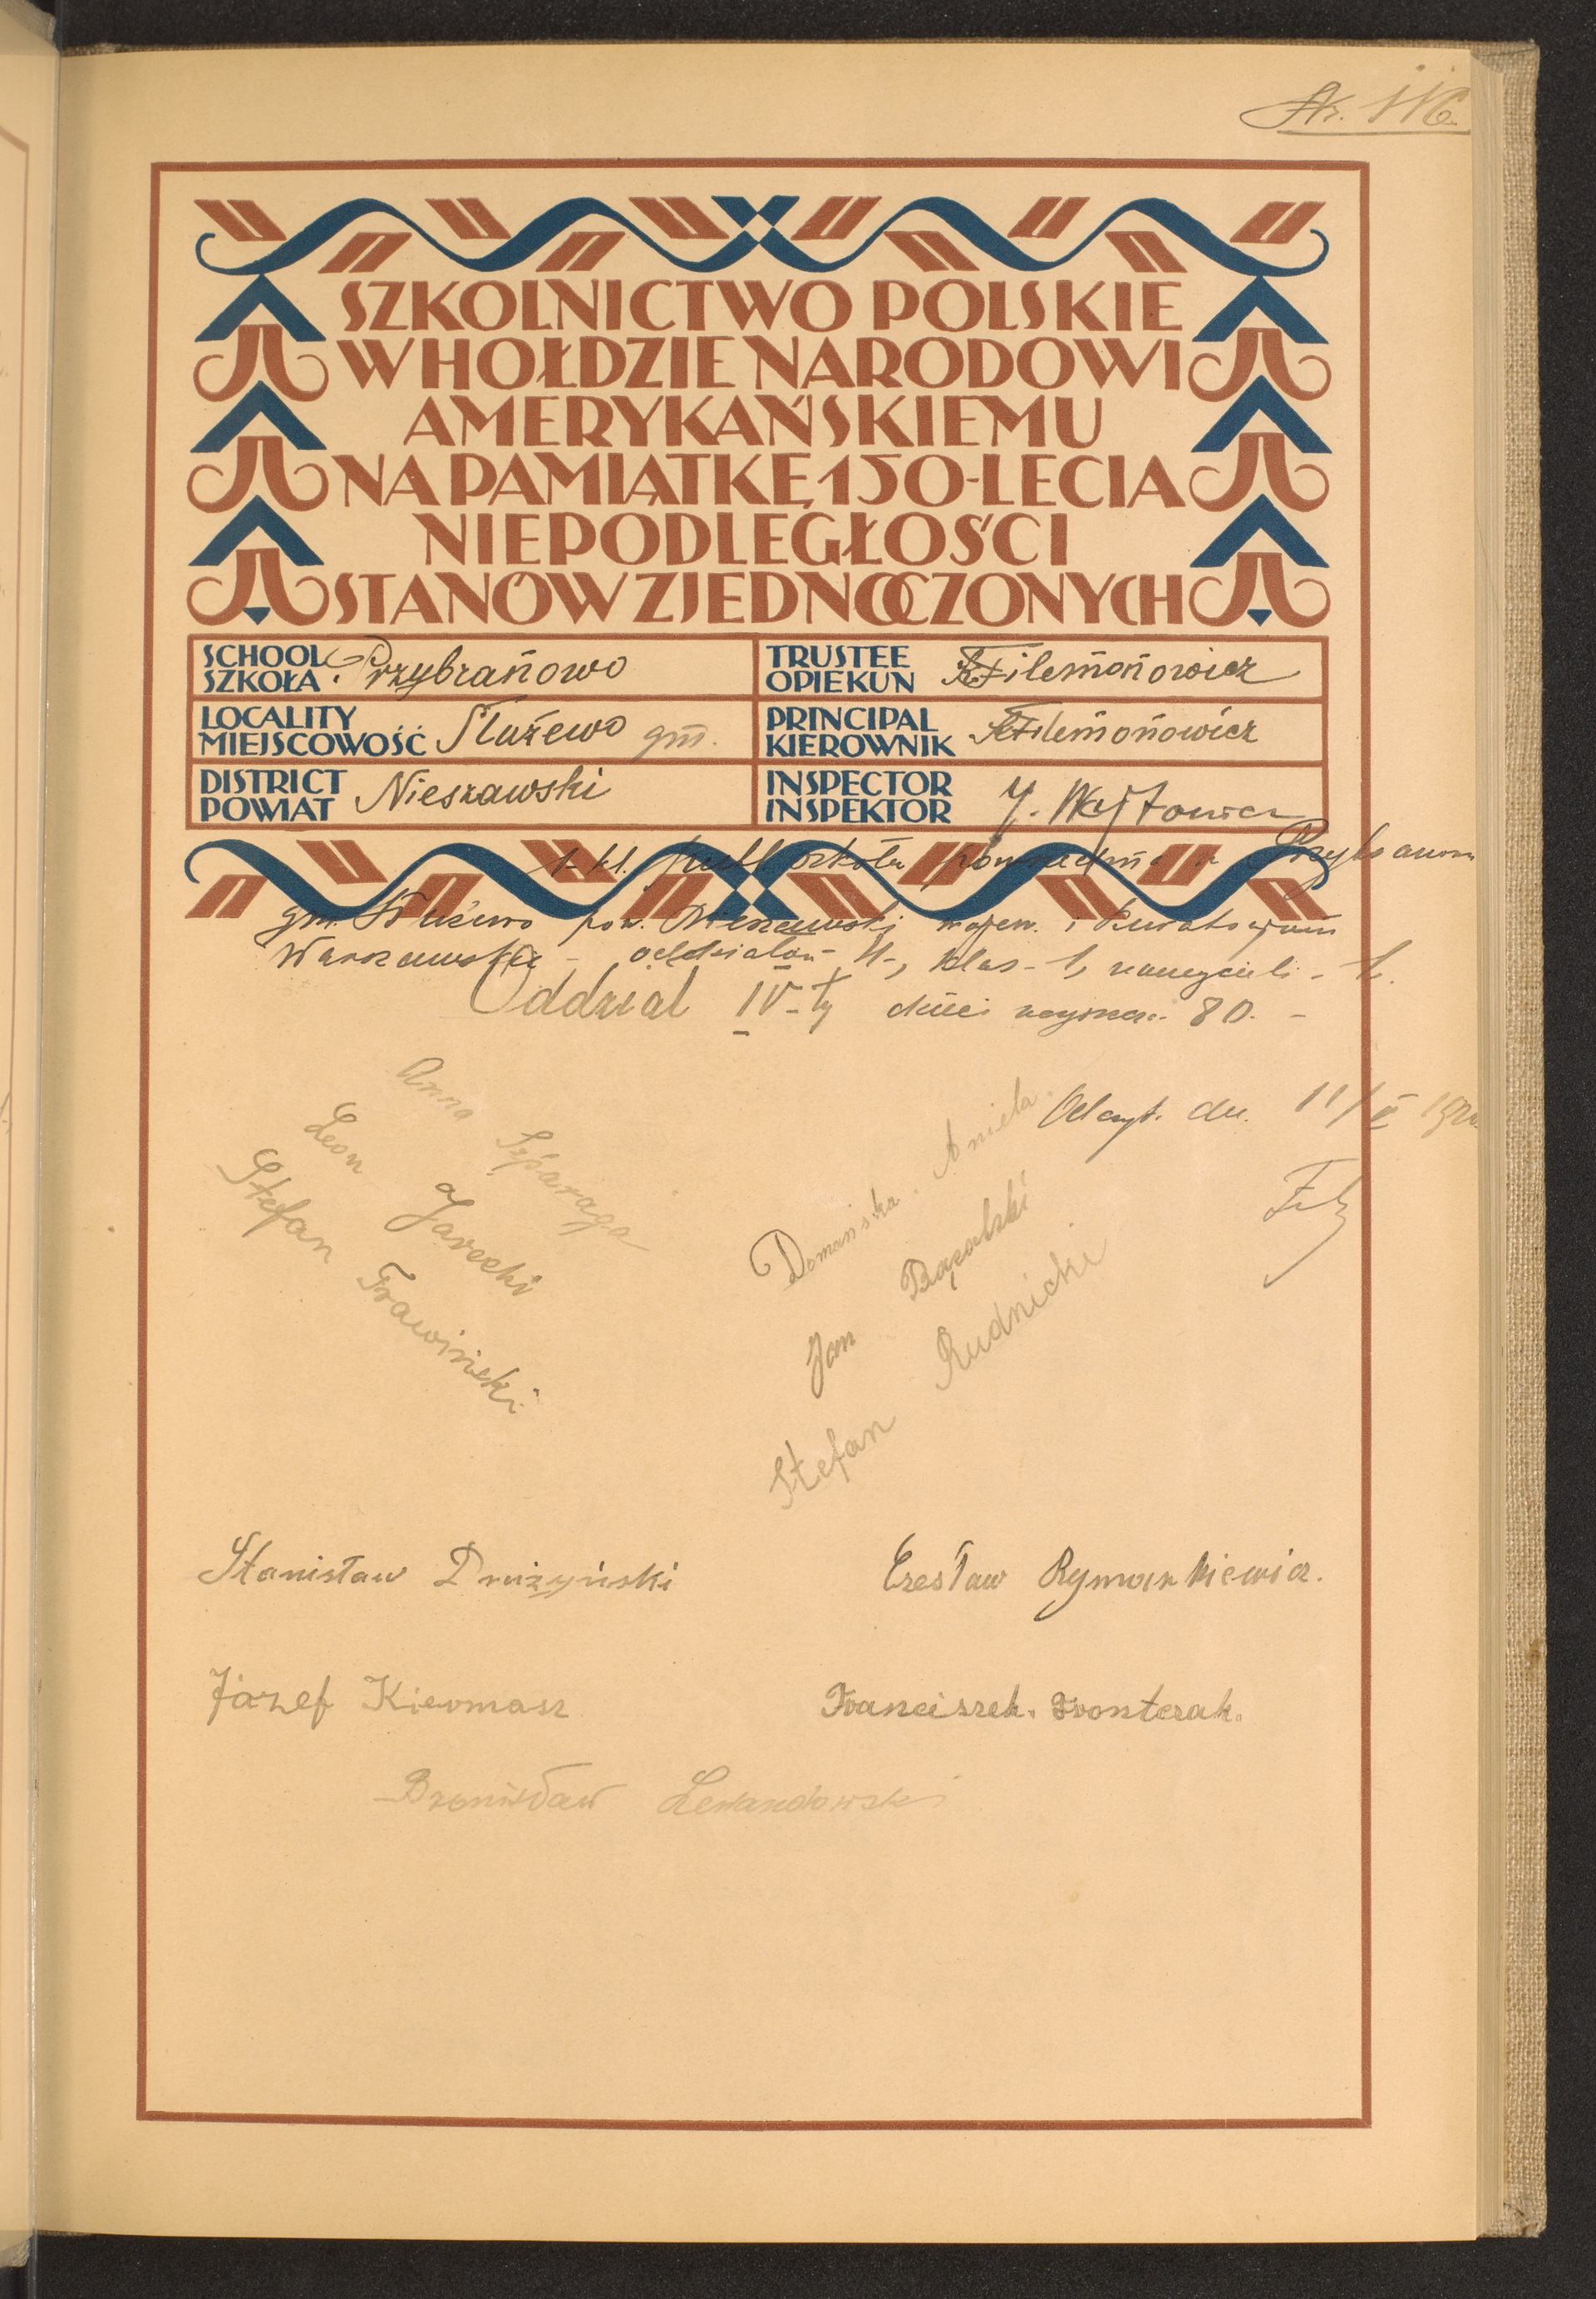 Str. 116.
SZKOLNICTWO POLSKIE
W HOŁDZIE NARODOWI
AMERYKAŃSKIEMU
NA PAMIĄTKĘ 150-LECIA
NIEPODLEGŁOŚCI
STANÓW ZJEDNOCZONYCH
SCHOOL
SZKOŁA Przybranowo
TRUSTEE
OPIEKUN Filemonowicz
LOCALITY
MIEJSCOWOŚĆ Służewo gm.
PRINCIPAL
KIEROWNIK Filemonowicz
DISTRICT
POWIAT Nieszawski
INSPECTOR
INSPEKTOR J. Wójtowicz
1 kl. publ. szkoła powszechna w
gm. Służewo pow. Nieszawski wojew. i
oddziałów - 4-, klas - 1, nauczycieli - 1.
Oddział IV-ty dzieci 80. -
dn. 11/
Anna Szparaga
Leon Jarecki
Stefan Trawiński
Domańska. Aniela.
Jan Bącalski
Stefan Rudnicki
Stanisław Drużyński
Czesław Rymarkiewicz.
Józef Kiermasz
Franciszek. Frontczak.
Bronisław Lewandowski